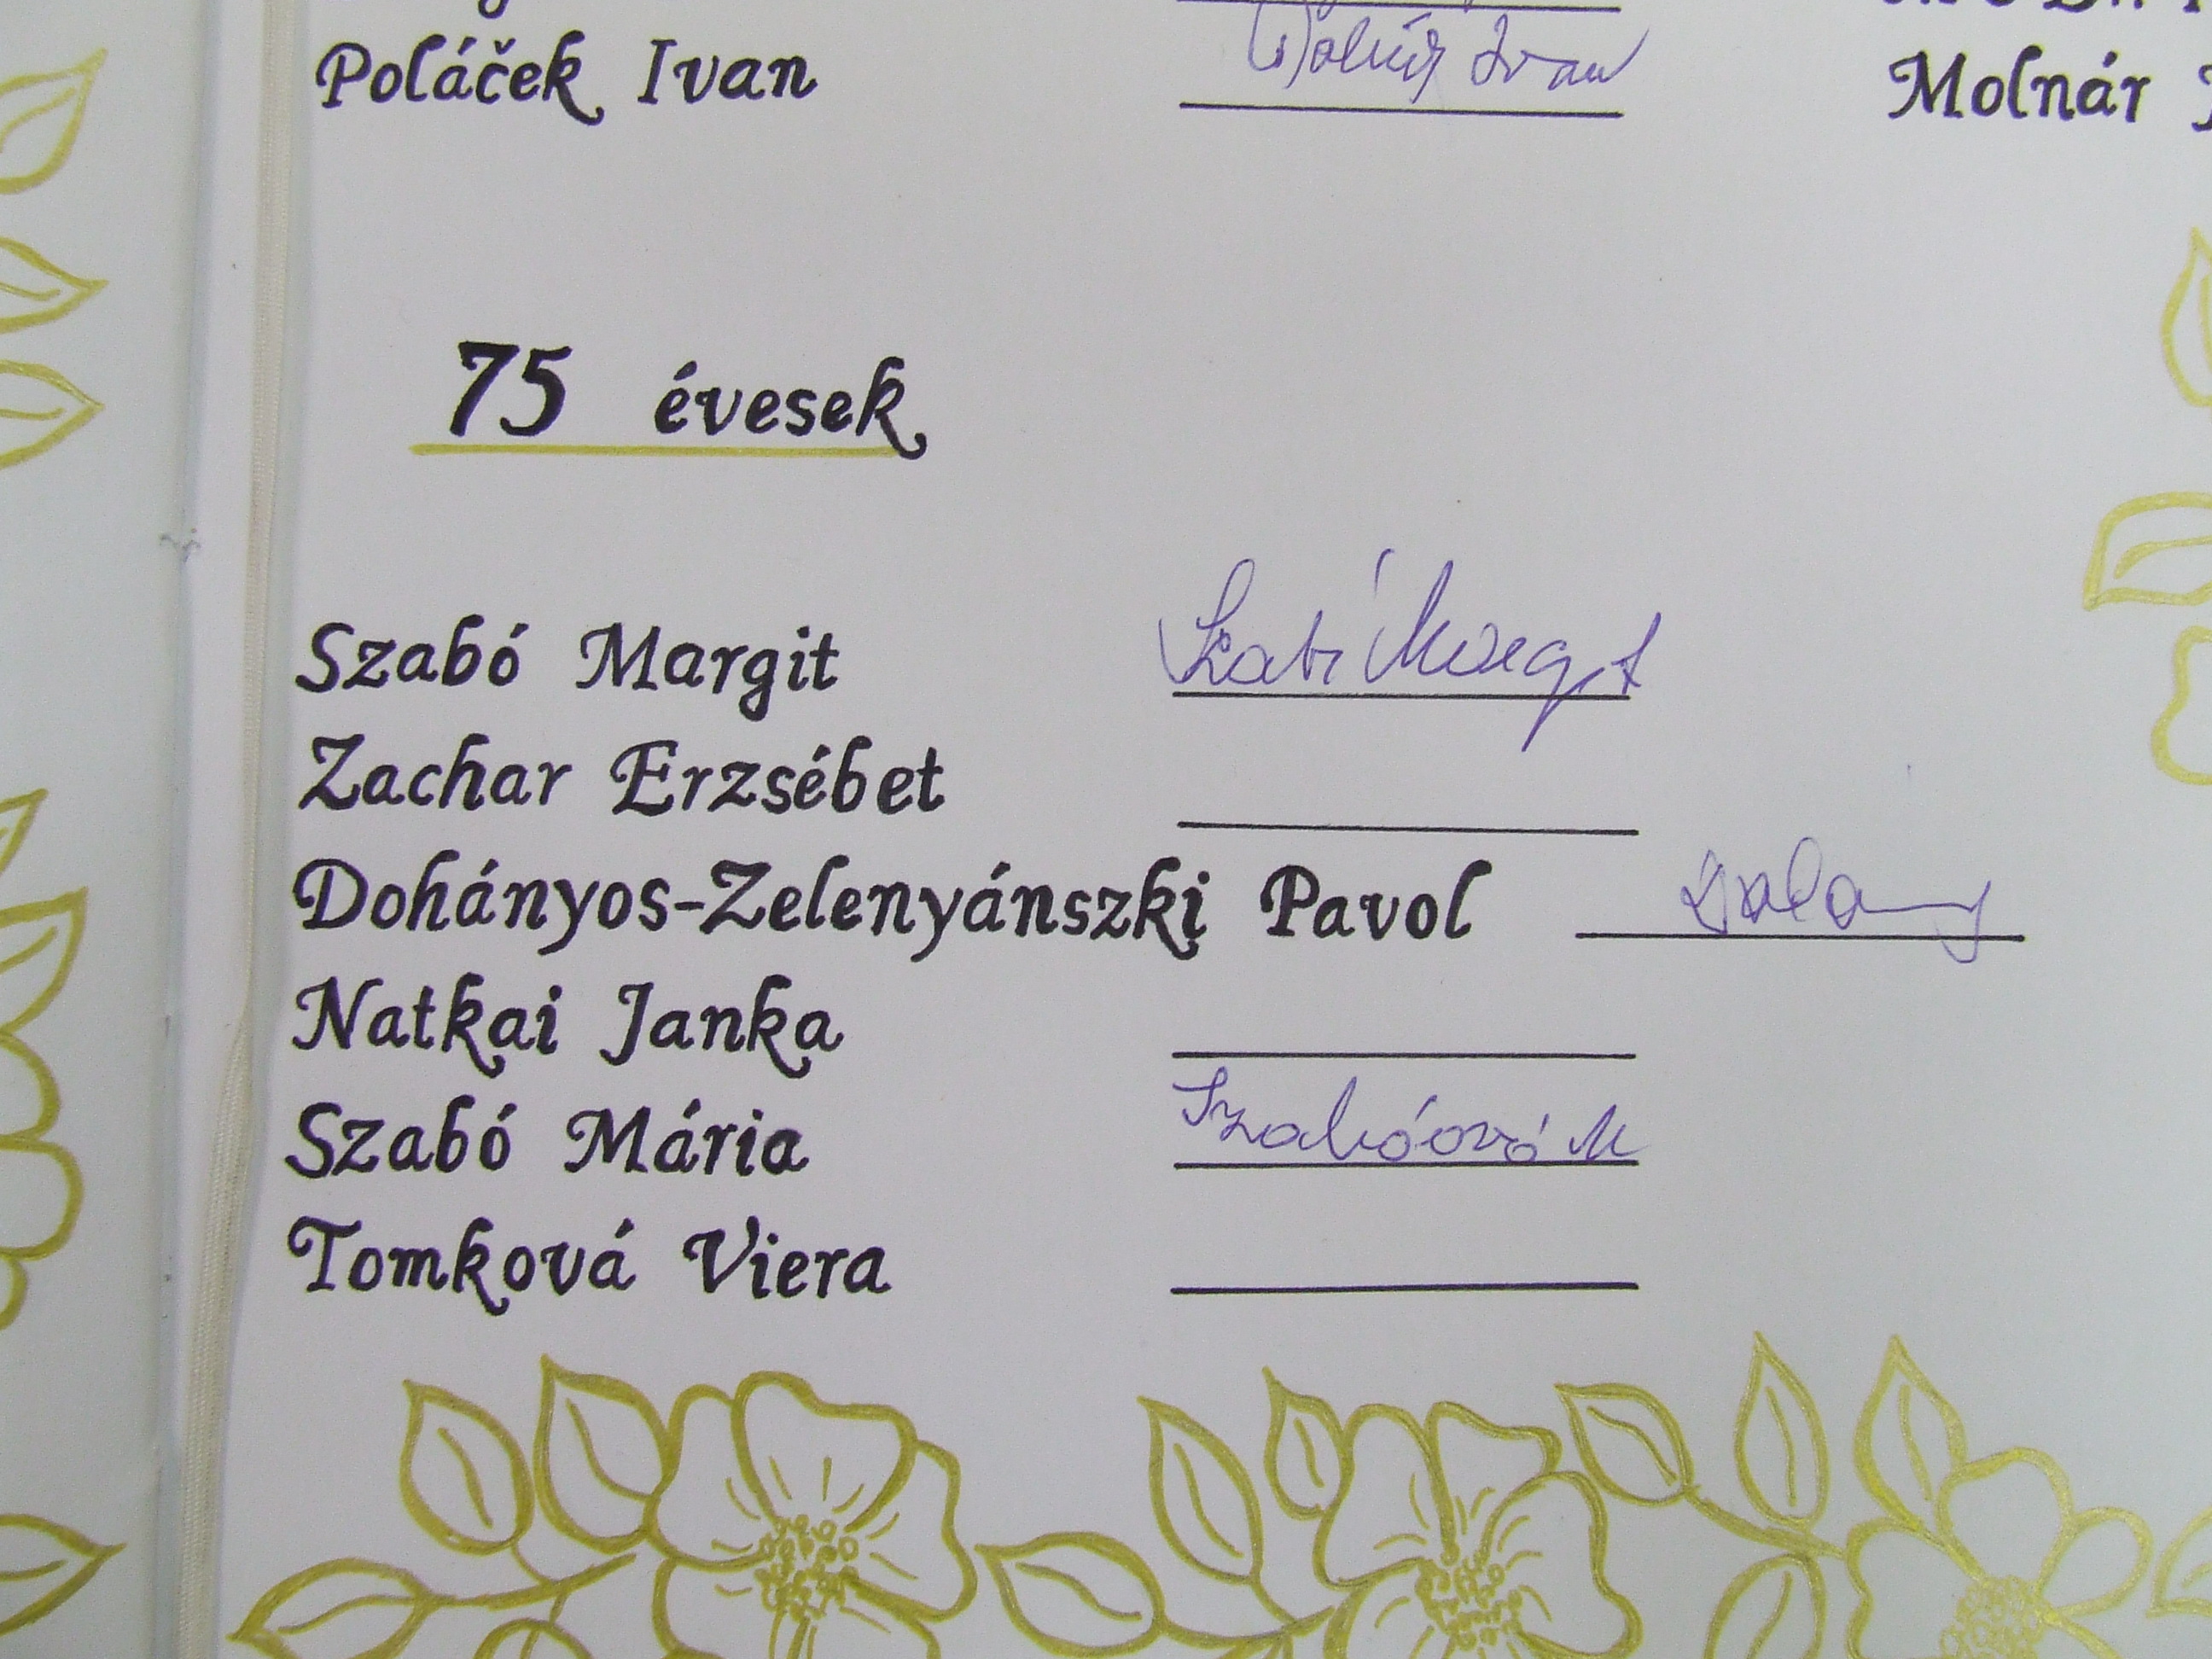 Poláček Ivan Ivan
Molnár
75 évesek
Szabó Margit Szabó Margit
Zachar Erzsébet
Dohányos-Zelenyánszki Pavol
Natkai Janka
Szabó Mária Szabóová M
Tomková Viera